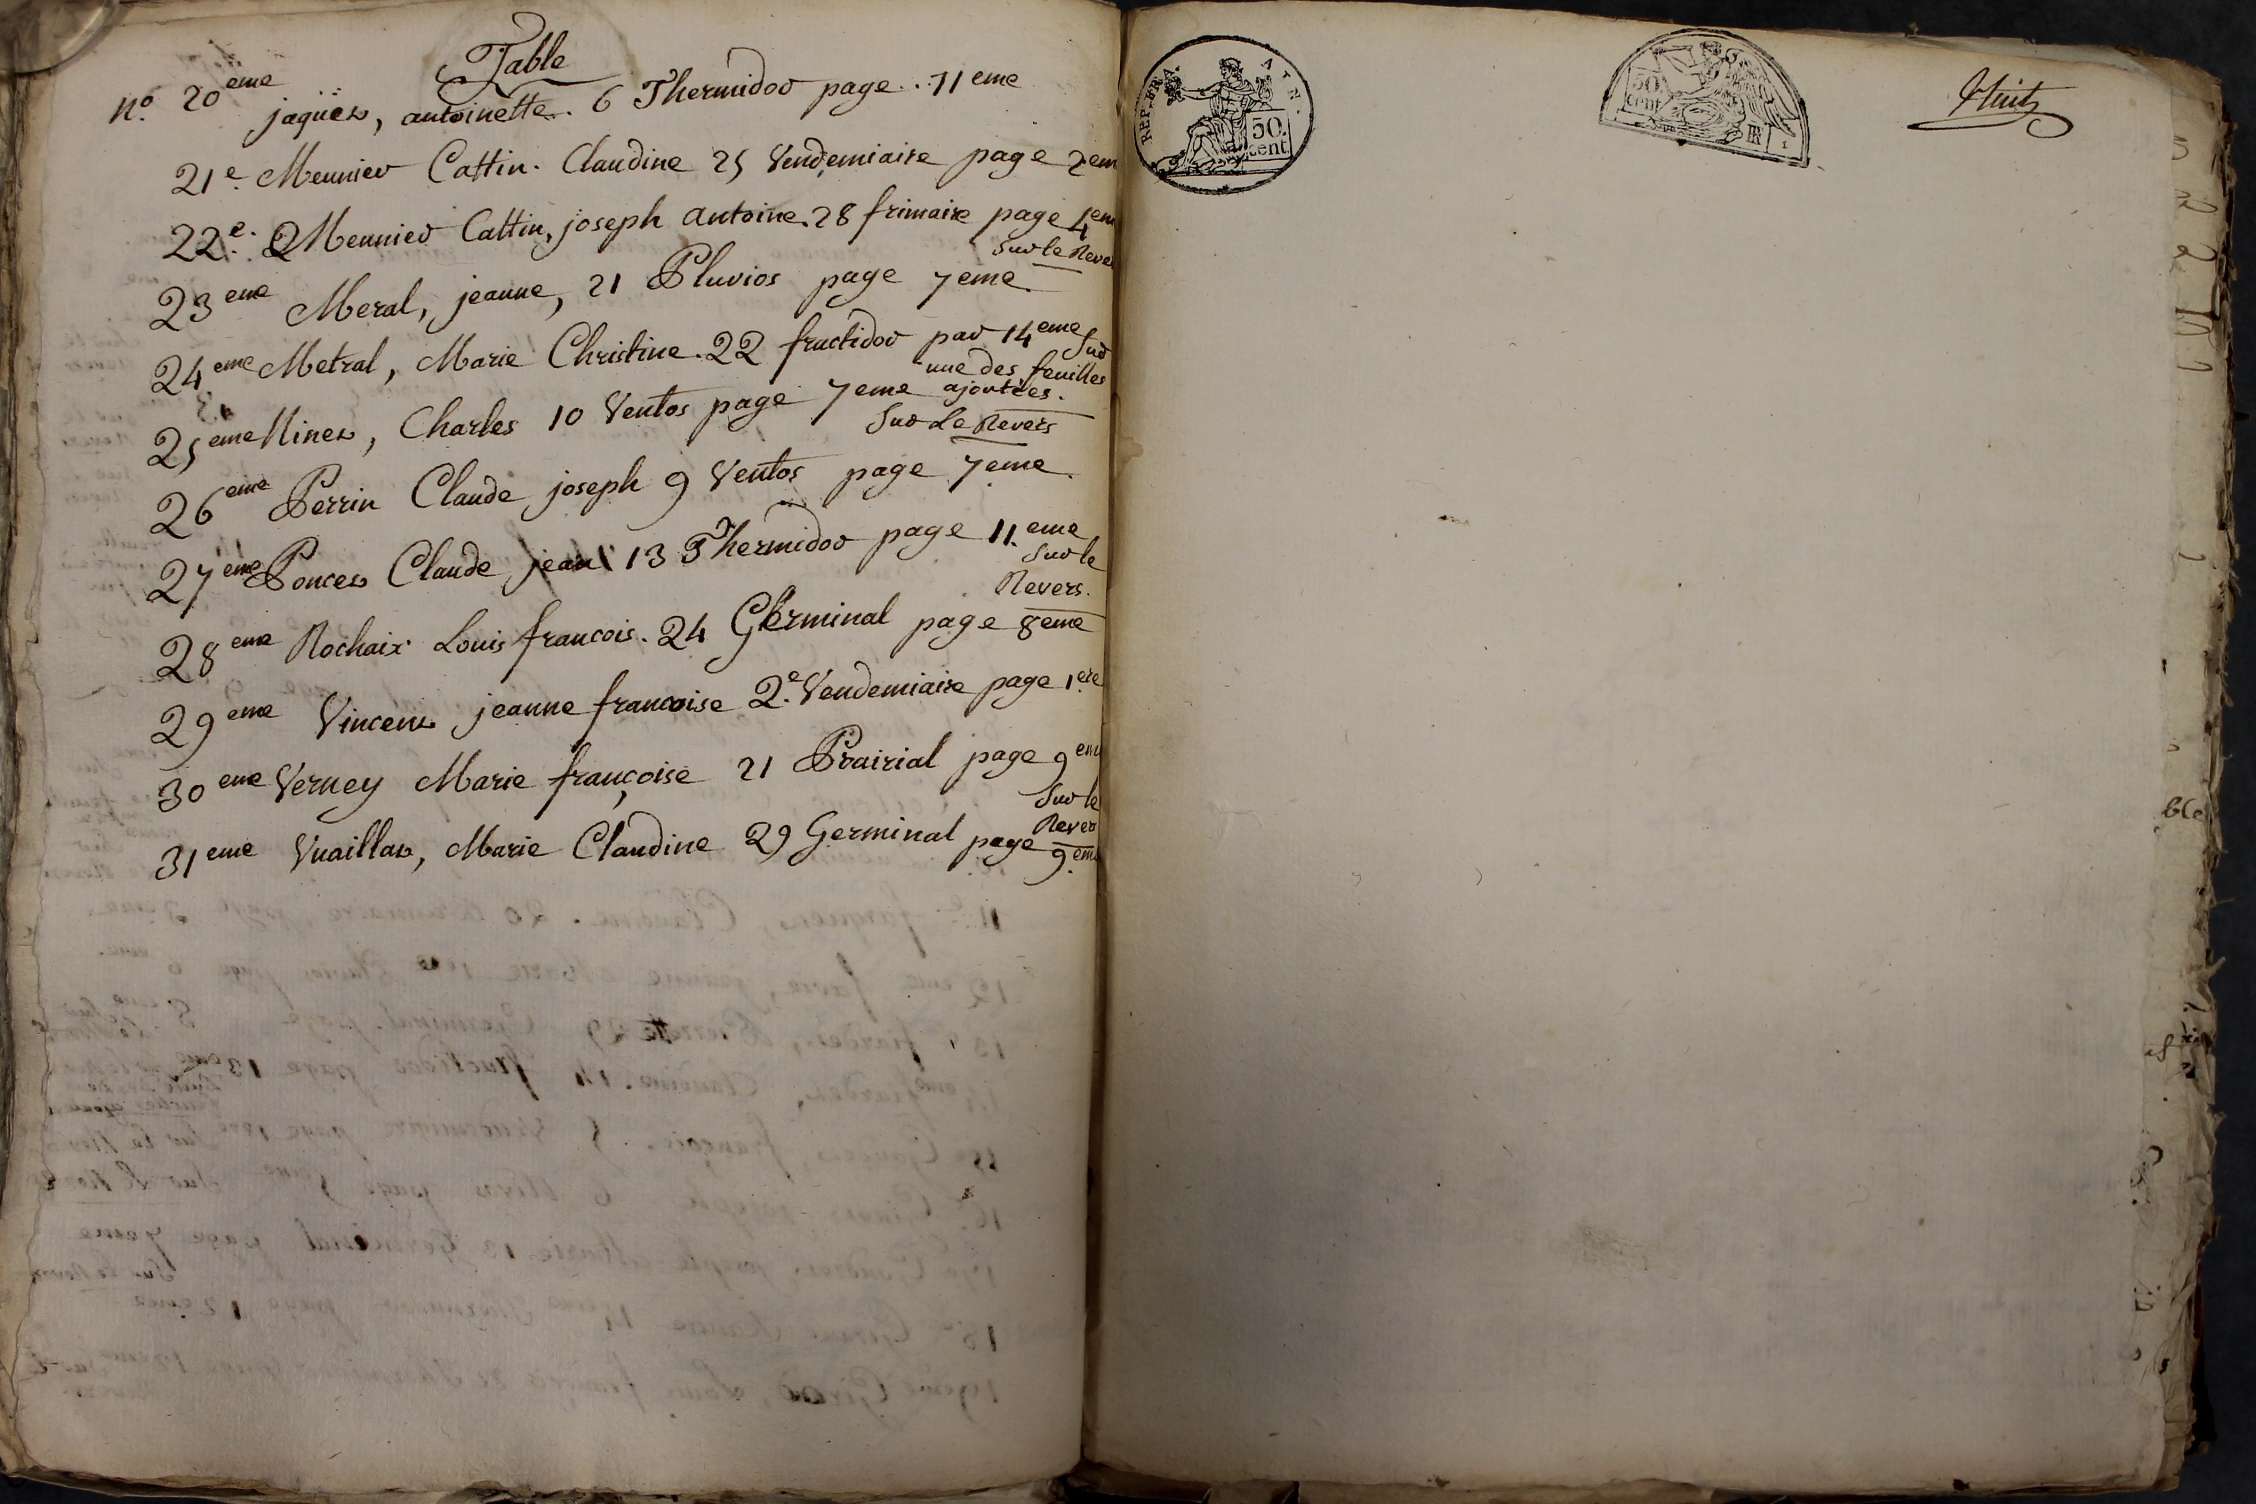 Table
n.o 20eme jaquier, antoinette. 6 Thermidor page .. 11eme
21e. Meunier Cattin. Claudine 25 Vendemiaire page 2em
22e. Meunier Cattin, joseph antoine. 28 frimaire page 4em
Sur le Rever
23eme Meral, jeanne, 21 Pluvios page 7eme
24eme Metral, Marie Christine. 22 fructidor par 14eme Sur
une des feuilles
ajoutées.
25eme Miner, Charles 10 Ventos page 7eme
Sur Le Revers
26eme Perrin Claude joseph 9 Ventos page 7eme
27eme Poncer Claude jean 13 Thermidor page 11.eme
Sur le
Revers.
28eme Rochaix Louis francois. 24 Germinal page 8eme
29eme Vincent jeanne francoise 2.e Vendemiaire page 1.ere
30eme Verney Marie françoise 21 Prairial page 9em
Sur le
Rever
31eme Vuaillar, Marie Claudine 29 Germinal page 9.em
REP. FRA.
50.
cent.
50.
cent
huit